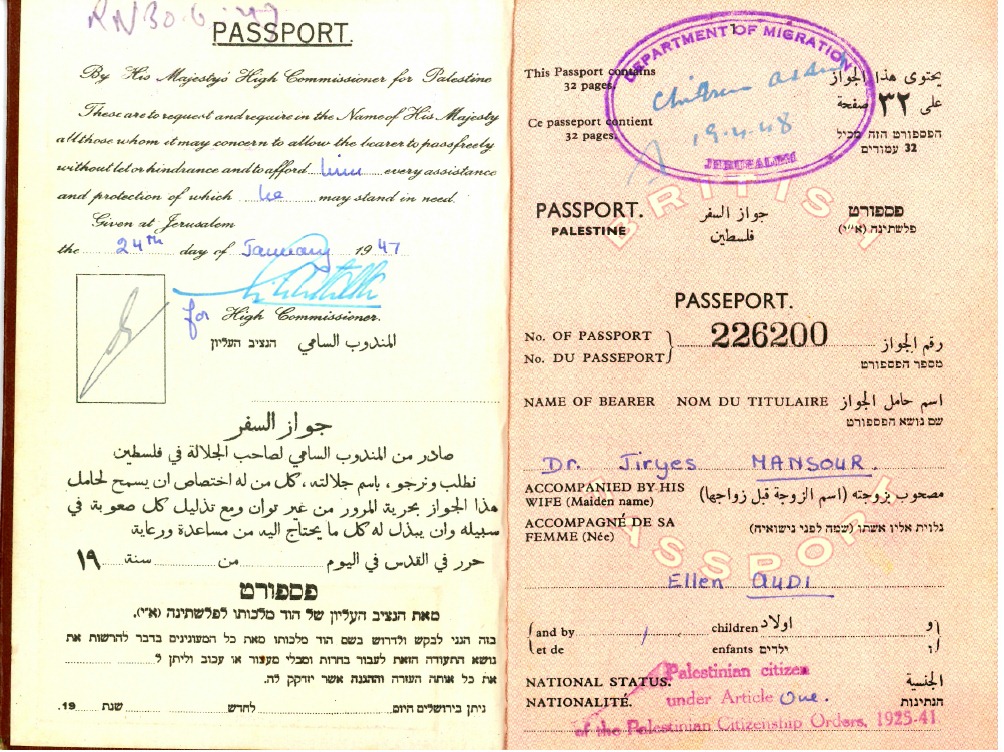 RN30.6.47
PASSPORT.
By His Majesty's High Commissioner for Palestine
These are to request and require in the Name of His Majesty
all those whom it may concern to allow the bearer to pass freely
without let or hindrance and to afford him every assistance
and protection of which he may stand in need.
Given at Jerusalem
the 24th day of January 1947
for High Commissioner.
הנציב העליון المندوب السامي
جواز السفر
صادر من المندوب السامي لصاحب الجلالة في فلسطين
نطلب ونرجو، باسم جلالته، كل من له اختصاص ان يسمح لحامل
هذا الجواز بحرية المرور من غير توان ومع تذليل كل صعوبة في
سبيله وان يبذل له كل ما يحتاج اليه من مساعدة ورعاية
حرر في القدس في اليوم من سنة ١٩
פספורט
מאת הנציב העליון של הוד מלכותו לפלשתינה (א״י).
בזה הנני לבקש ולדרוש בשם הוד מלכותו מאת כל המעונינים בדבר להרשות את
נושא התעודה הזאת לעבור בחרות ומבלי מעצור או עכוב וליתן ל
את כל אותה העזרה וההגנה אשר יזדקק לה.
ניתן בירושלים היום לחדש שנת 19.
1
DEPARTMENT OF MIGRATION
This Passport contains
32 pages.
Ce passeport contient
32 pages.
Children added
19.4.48
JERUSALEM
يحتوى هذا الجواز
على ٣٢ صفحة
הפספורט הזה מכיל
32 עמודים
BRITISH
PASSPORT.
PALESTINE
جواز السفر
فلسطين
פספורט
פלשתינה (א״י)
PASSEPORT.
No. OF PASSPORT
No. DU PASSEPORT
226200
رقم الجواز
מספר הפספורט
NAME OF BEARER NOM DU TITULAIRE اسم حامل الجواز
שם נושא הפספורט
Dr. Jiryes MANSOUR.
ACCOMPANIED BY HIS
WIFE (Maiden name)
مصحوب بزوجته (اسم الزوجة قبل زواجها)
ACCOMPAGNÉ DE SA
FEMME (Née)
נלוית אליו אשתו (שמה לפני נישואיה)
PASSPORT
Ellen AUDI
and by / children اولاد و
et de enfants ילדים ו
NATIONAL STATUS.
NATIONALITÉ.
الجنسية
הנתינות
Palestinian citizen
under Article One.
of the Palestinian Citizenship Orders, 1925-41.